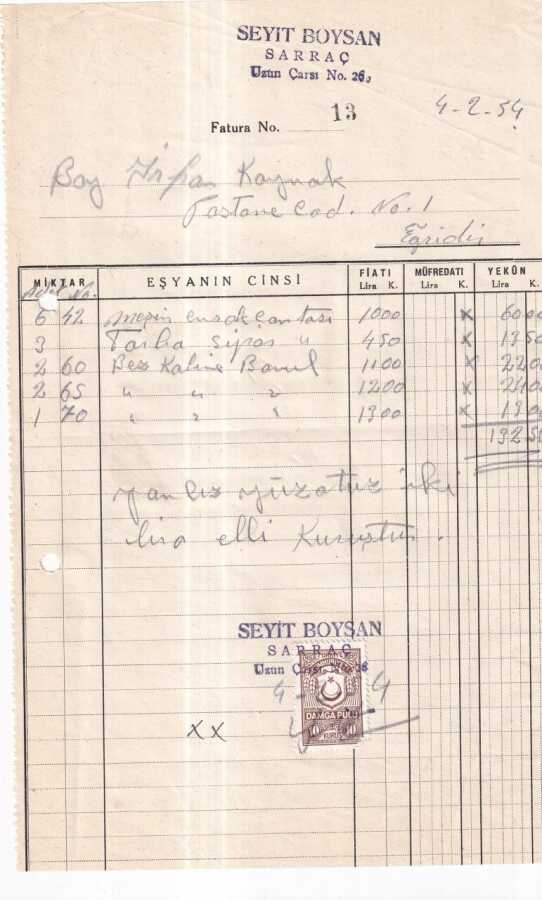 SEYİT BOYSAN
SARRAÇ
Uzun Çarsı No. 26
4-2-54
Fatura No. 13
Bay İrfan Kaynak
Pastane Cad. No. 1
Eğridir
MİKTAR EŞYANIN CİNSİ FİATI MÜFREDATI YEKÛN
Lira K. Lira K. Lira K.
Adet No.
6 42 1000 x 6000
3 Tahta 450 x 1350
2 60 Bez Kaline Bavul 1100 x 2200
2 65 " " " 1200 x 2400
1 70 " " " 1300 x 1300
13250
yanlız yüzotuz iki
lira elli Kuruştur.
SEYİT BOYSAN
SARRAÇ
Uzun Çarsı No. 26
DAMGA PULU
10 10
KURUŞ
x x